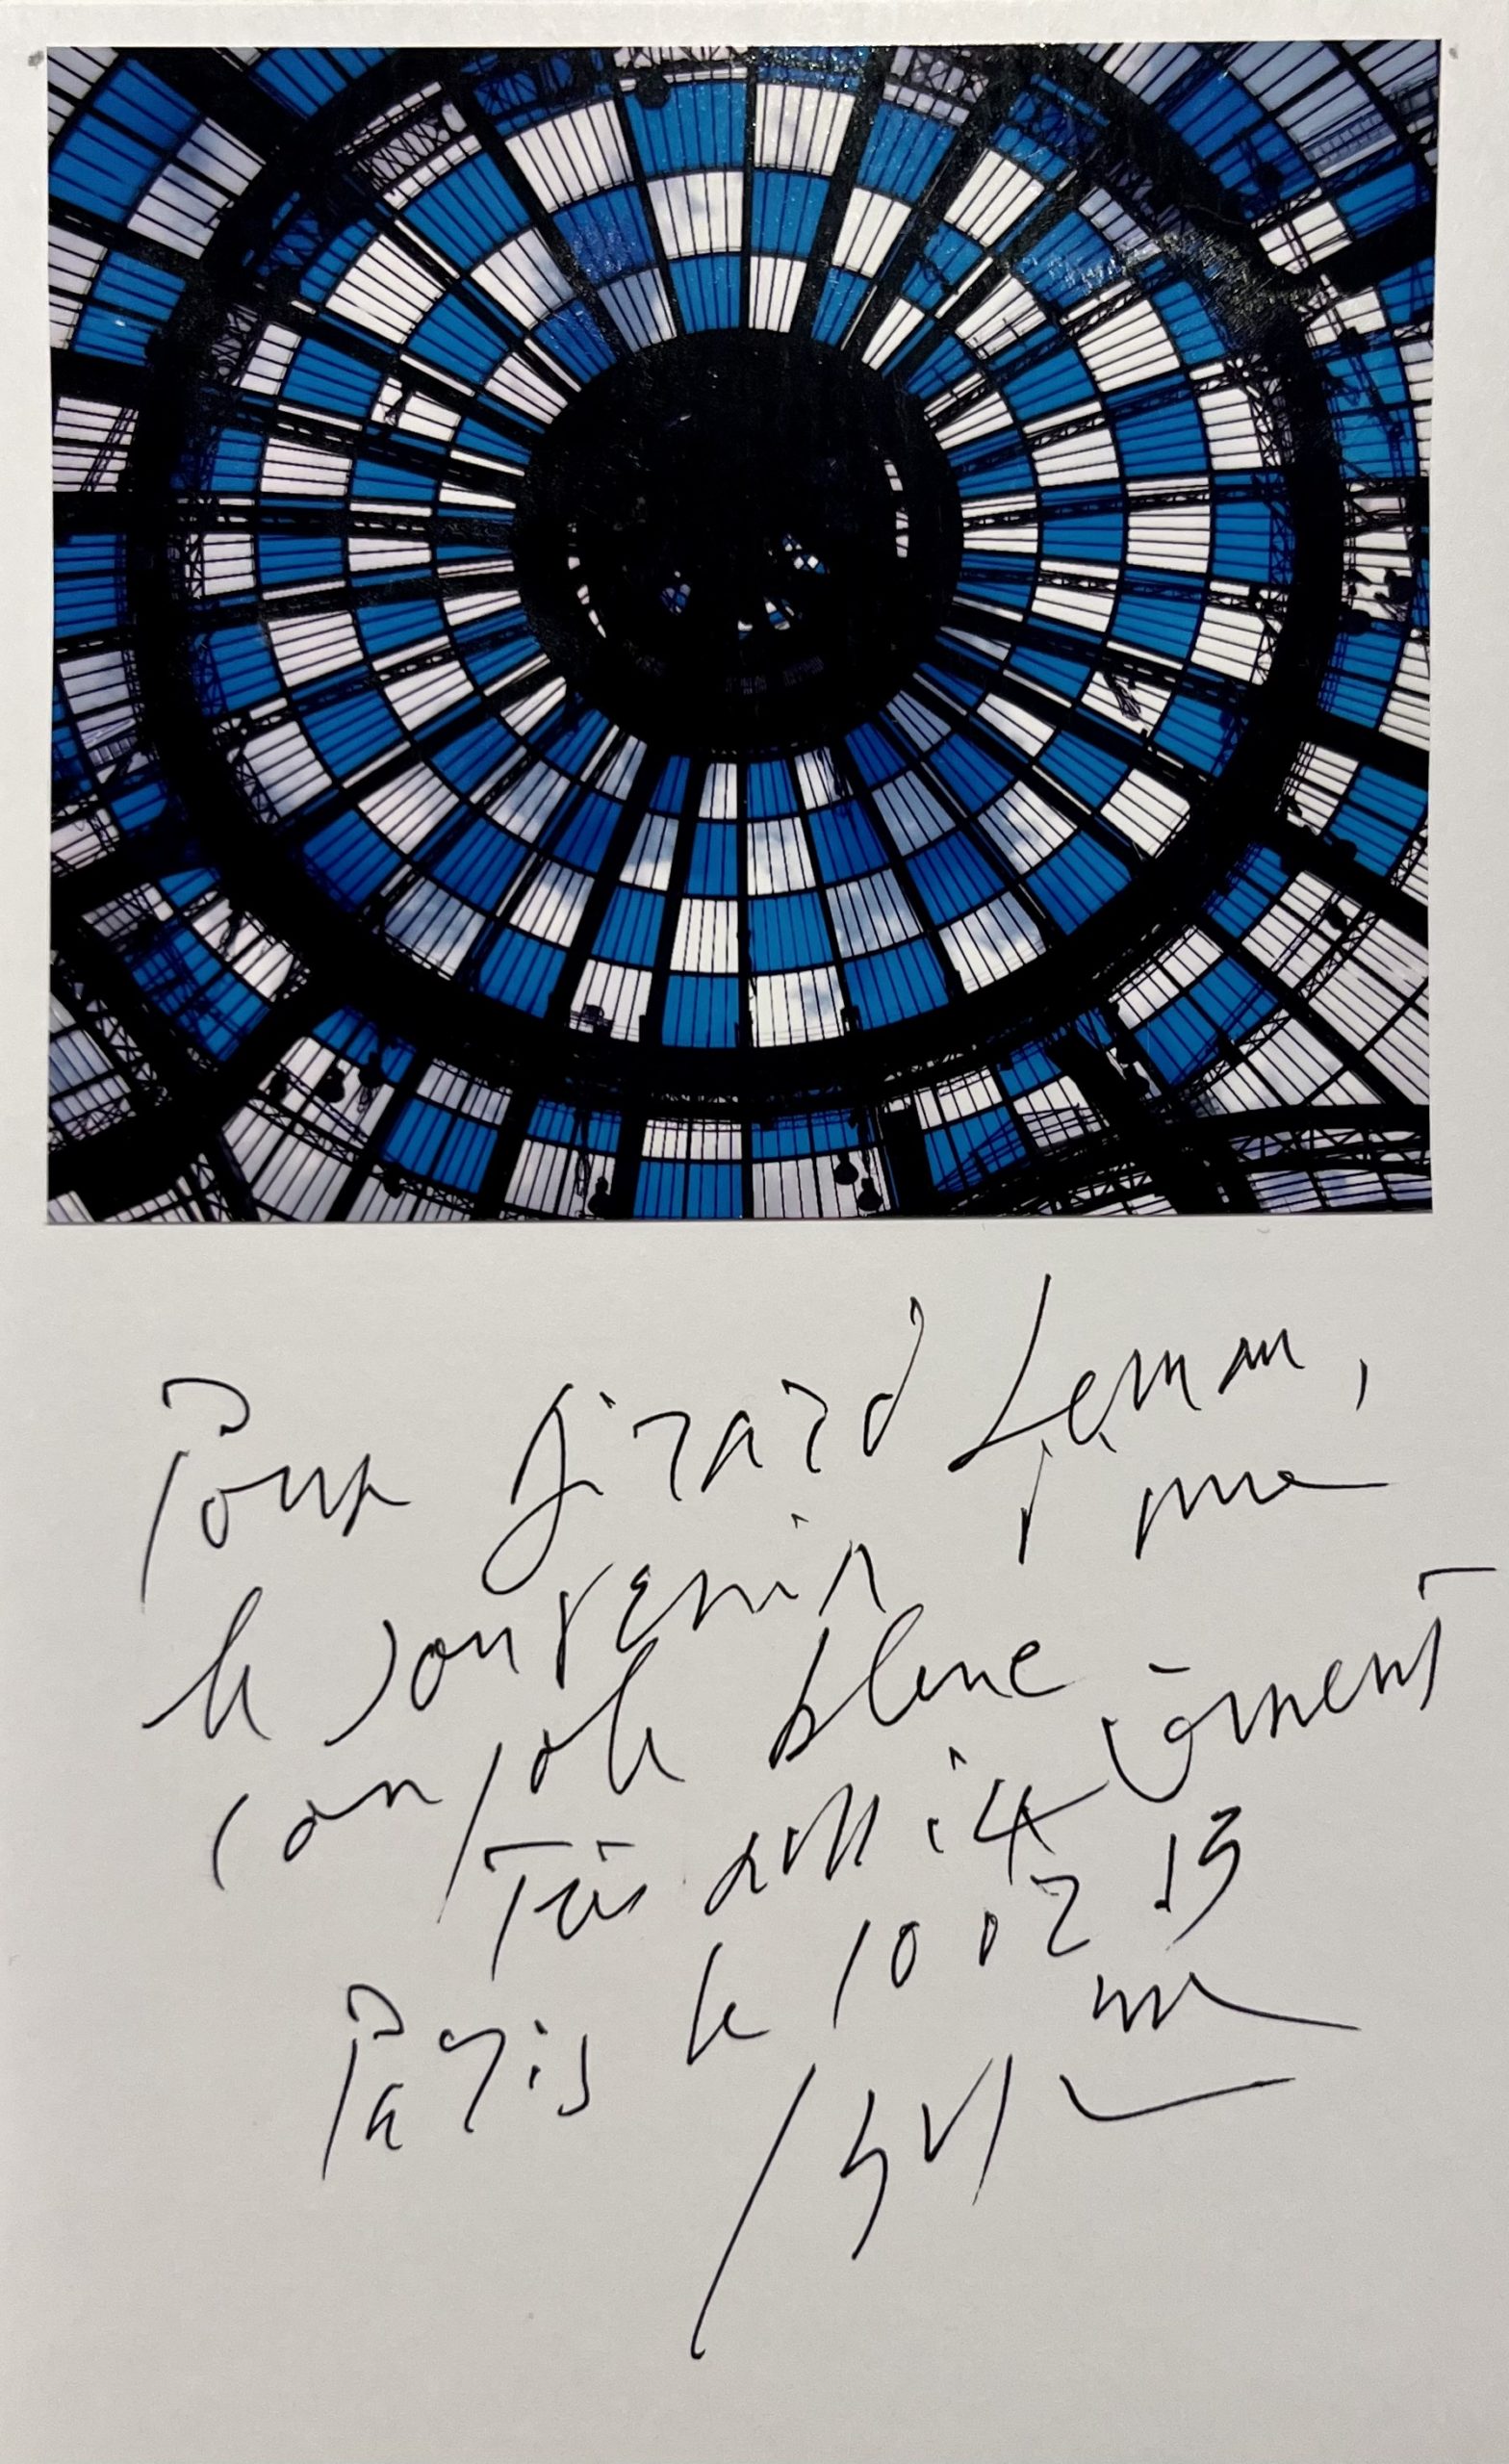 Pour Girard
le souvenir d'une
coupole bleue
Très amicalement
Paris le 10 02 13